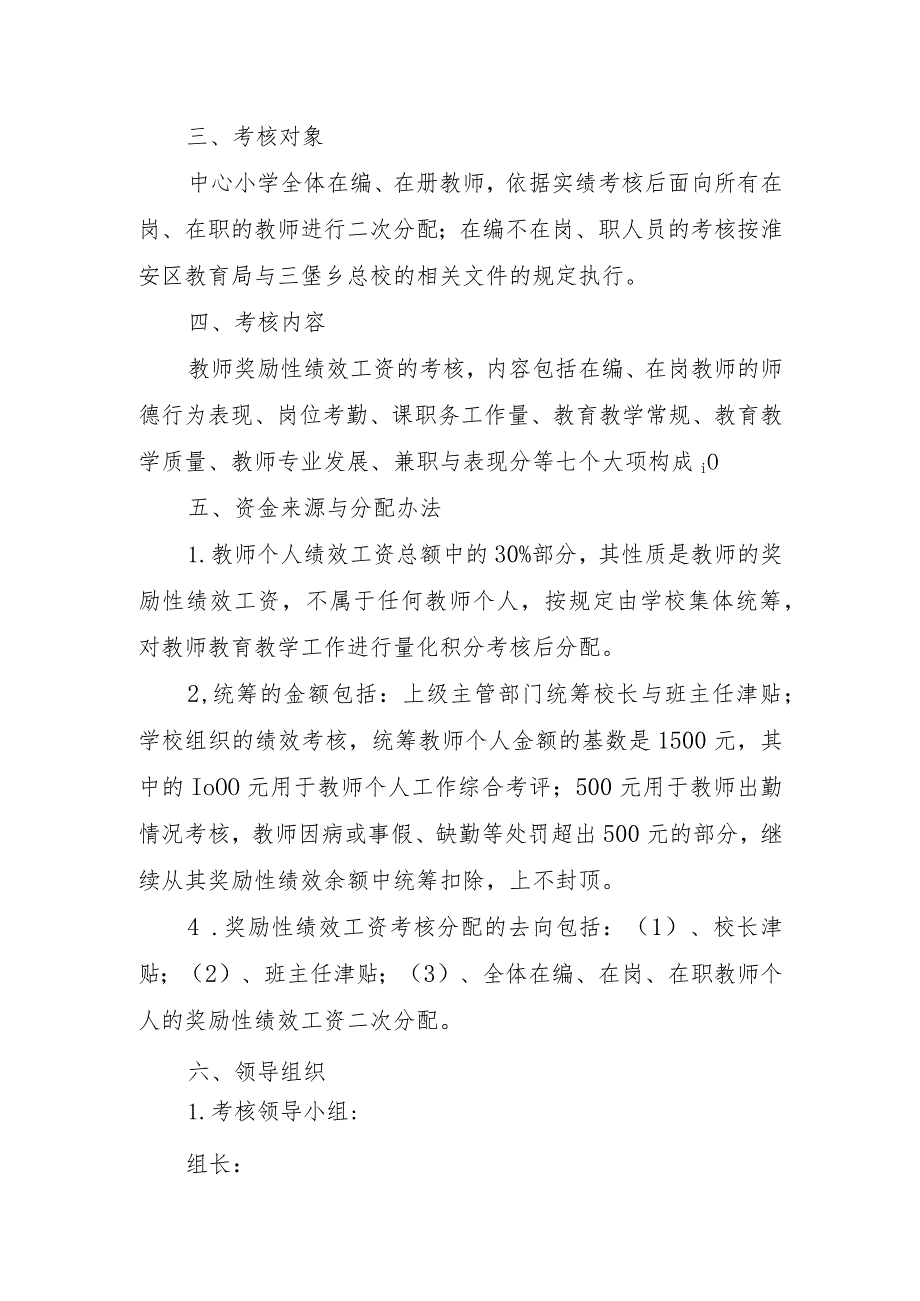 三、考核对象
中心小学全体在编、在册教师，依据实绩考核后面向所有在
岗、在职的教师进行二次分配；在编不在岗、职人员的考核按淮
安区教育局与三堡乡总校的相关文件的规定执行。
四、考核内容
教师奖励性绩效工资的考核，内容包括在编、在岗教师的师
德行为表现、岗位考勤、课职务工作量、教育教学常规、教育教
学质量、教师专业发展、兼职与表现分等七个大项构成 i0
五、资金来源与分配办法
1.教师个人绩效工资总额中的30%部分，其性质是教师的奖
励性绩效工资，不属于任何教师个人，按规定由学校集体统筹，
对教师教育教学工作进行量化积分考核后分配。
2,统筹的金额包括：上级主管部门统筹校长与班主任津贴；
学校组织的绩效考核，统筹教师个人金额的基数是1500元，其
中的IoOO元用于教师个人工作综合考评；500元用于教师出勤
情况考核，教师因病或事假、缺勤等处罚超出500元的部分，继
续从其奖励性绩效余额中统筹扣除，上不封顶。
4 .奖励性绩效工资考核分配的去向包括：（1）、校长津
贴；（2）、班主任津贴；（3）、全体在编、在岗、在职教师个
人的奖励性绩效工资二次分配。
六、领导组织
1.考核领导小组:
组长：